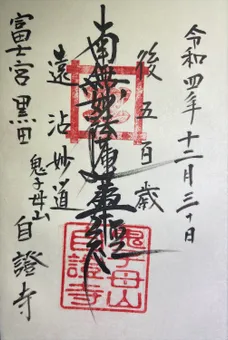 令和四年十二月三十日
後五百歳
南無妙法蓮華経
遠沾妙道
富士宮黒田
鬼子母山
自證寺
鬼子母山
自證寺